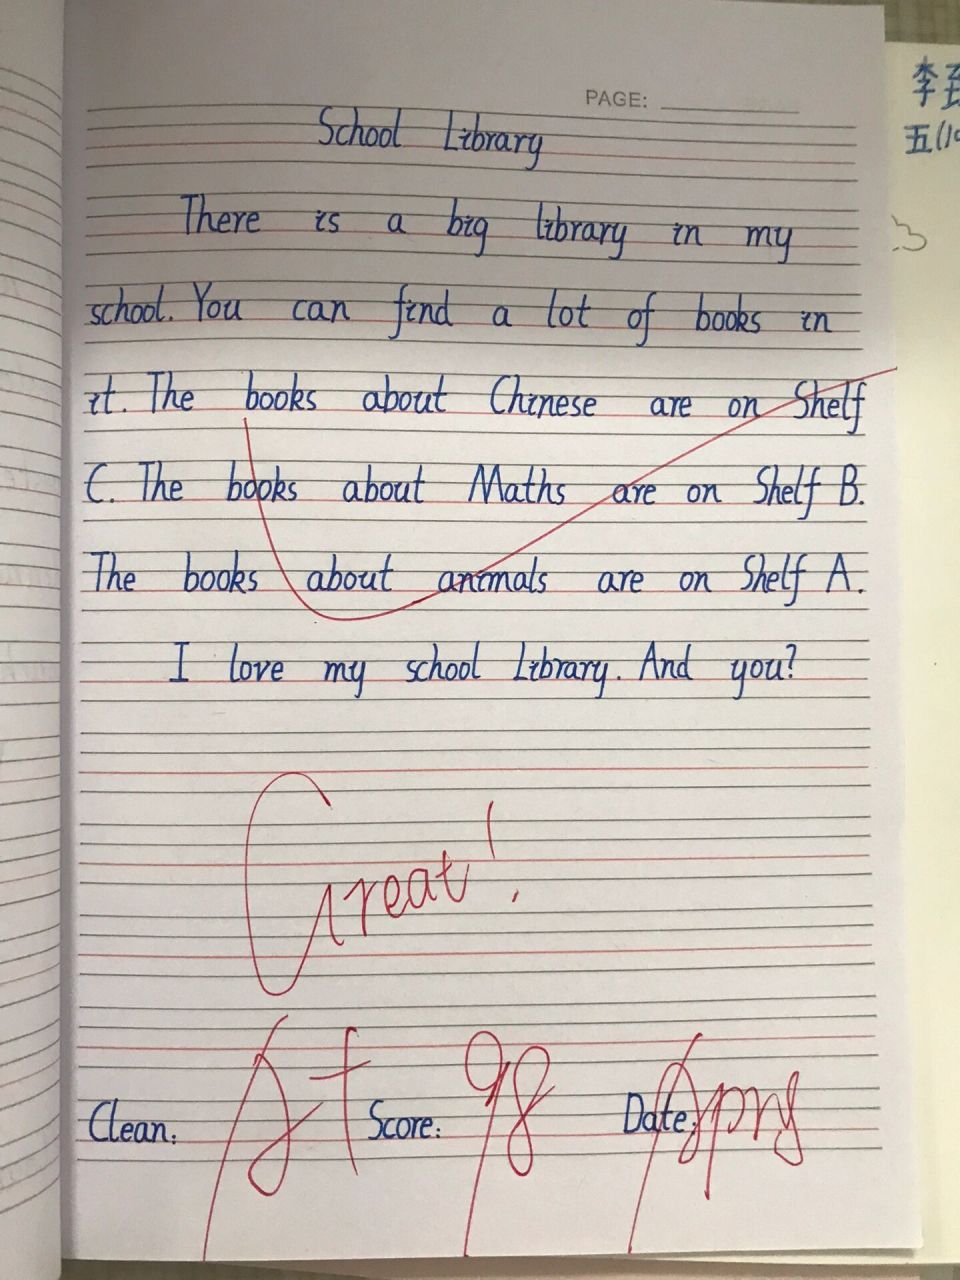 PAGE:
School Library
There is a big library in my
school. You can find a lot of books in
it. The books about Chinese are on Shelf
C. The books about Maths are on Shelf B.
The books about animals are on Shelf A.
I love my school library. And you?
Great!
Clean: A+ Score: 98 Date:
李
五(10